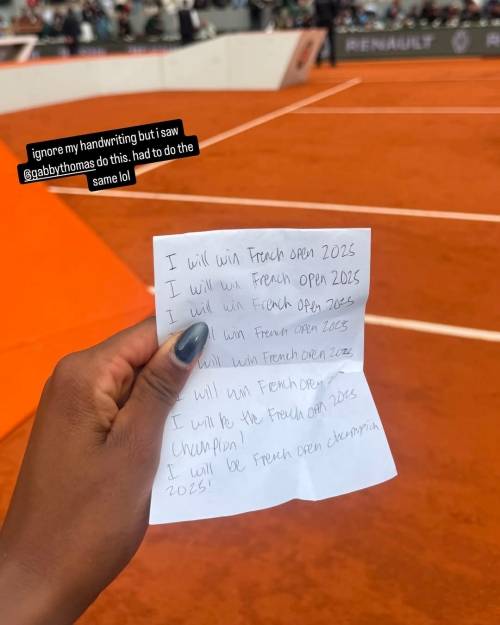 RENAULT
ignore my handwriting but i saw
@gabbythomas do this. had to do the
same lol
I will win French open 2025
I will win French open 2025
I will win French open 2025
will win French open 2025
will win French open 2025
I will win French open
I will be the French open 2025
Champion!
I will be French open champion
2025!